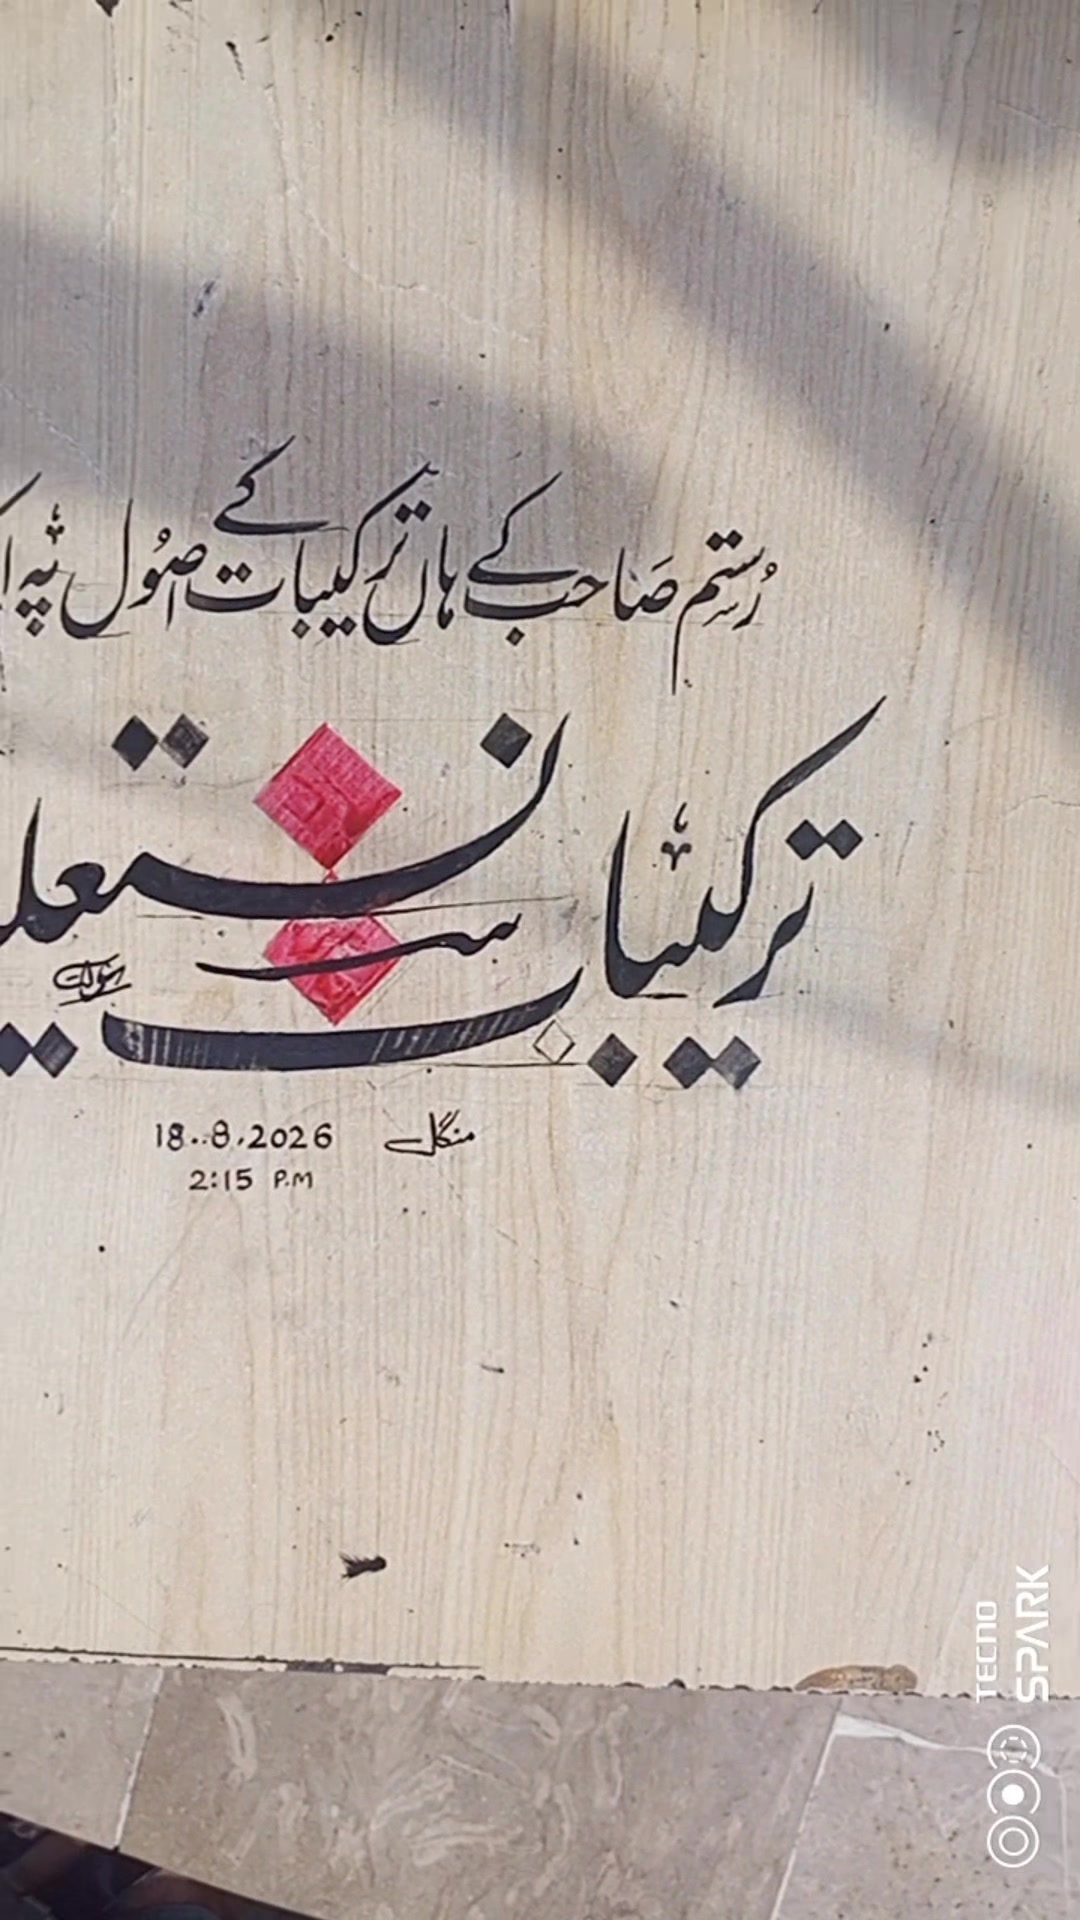 رُستم صَاحب کے ہاں ترکیبات کے اصُول پہ
ترکیبات نستعلیـ
18.8.2026 منگل
2:15 P.M
TECNO
SPARK